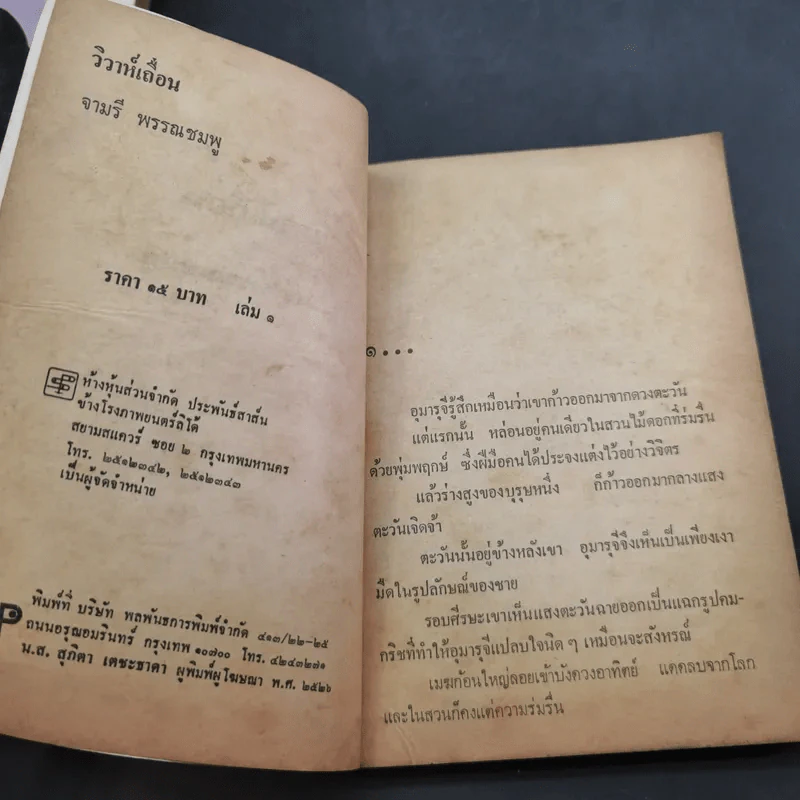 วิวาห์เถื่อน
จามรี พรรณชมพู
ราคา ๑๕ บาท เล่ม ๑
ห้างหุ้นส่วนจำกัด ประพันธ์สาส์น
ข้างโรงภาพยนตร์ลิโด้
สยามสแควร์ ซอย ๒ กรุงเทพมหานคร
โทร. ๒๕๑๒๓๔๒, ๒๕๑๒๓๔๓
เป็นผู้จัดจำหน่าย
พิมพ์ที่ บริษัท พลพันธ์การพิมพ์จำกัด ๔๑๓/๒๒-๒๕
ถนนอรุณอมรินทร์ กรุงเทพ ๑๐๗๐๐ โทร. ๔๒๔๓๒๗๑
น.ส. สุภิตา เตชะธาดา ผู้พิมพ์ผู้โฆษณา พ.ศ. ๒๕๒๖
๑...
อุมารุจีรู้สึกเหมือนว่าเขาก้าวออกมาจากดวงตะวัน
แต่แรกนั้น หล่อนอยู่คนเดียวในสวนไม้ดอกที่ร่มรื่น
ด้วยพุ่มพฤกษ์ ซึ่งฝีมือคนได้ประจงแต่งไว้อย่างวิจิตร
แล้วร่างสูงของบุรุษหนึ่ง ก็ก้าวออกมากลางแสง
ตะวันเจิดจ้า
ตะวันนั้นอยู่ข้างหลังเขา อุมารุจีจึงเห็นเป็นเพียงเงา
มืดในรูปลักษณ์ของชาย
รอบศีรษะเขาเห็นแสงตะวันฉายออกเป็นแฉกรูปคม-
กริชที่ทำให้อุมารุจีแปลบใจนิด ๆ เหมือนจะสังหรณ์
เมฆก้อนใหญ่ลอยเข้าบังดวงอาทิตย์ แดดลบจากโลก
และในสวนก็คงแต่ความร่มรื่น